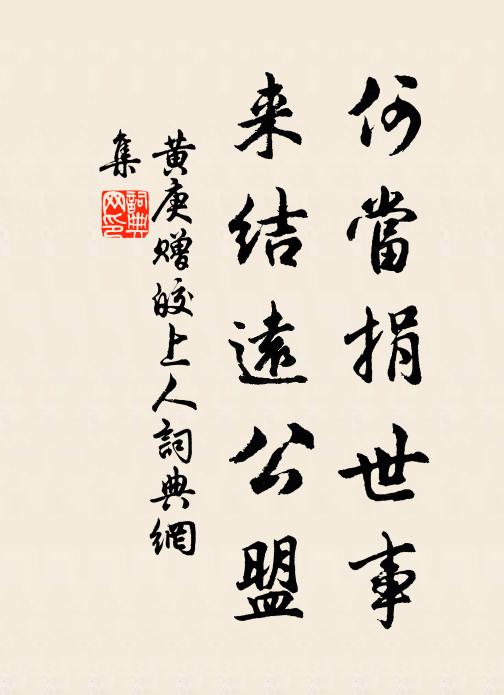 何當捐世事
来結遠公盟
黄庚贈皎上人詞典網
集
詞典網印